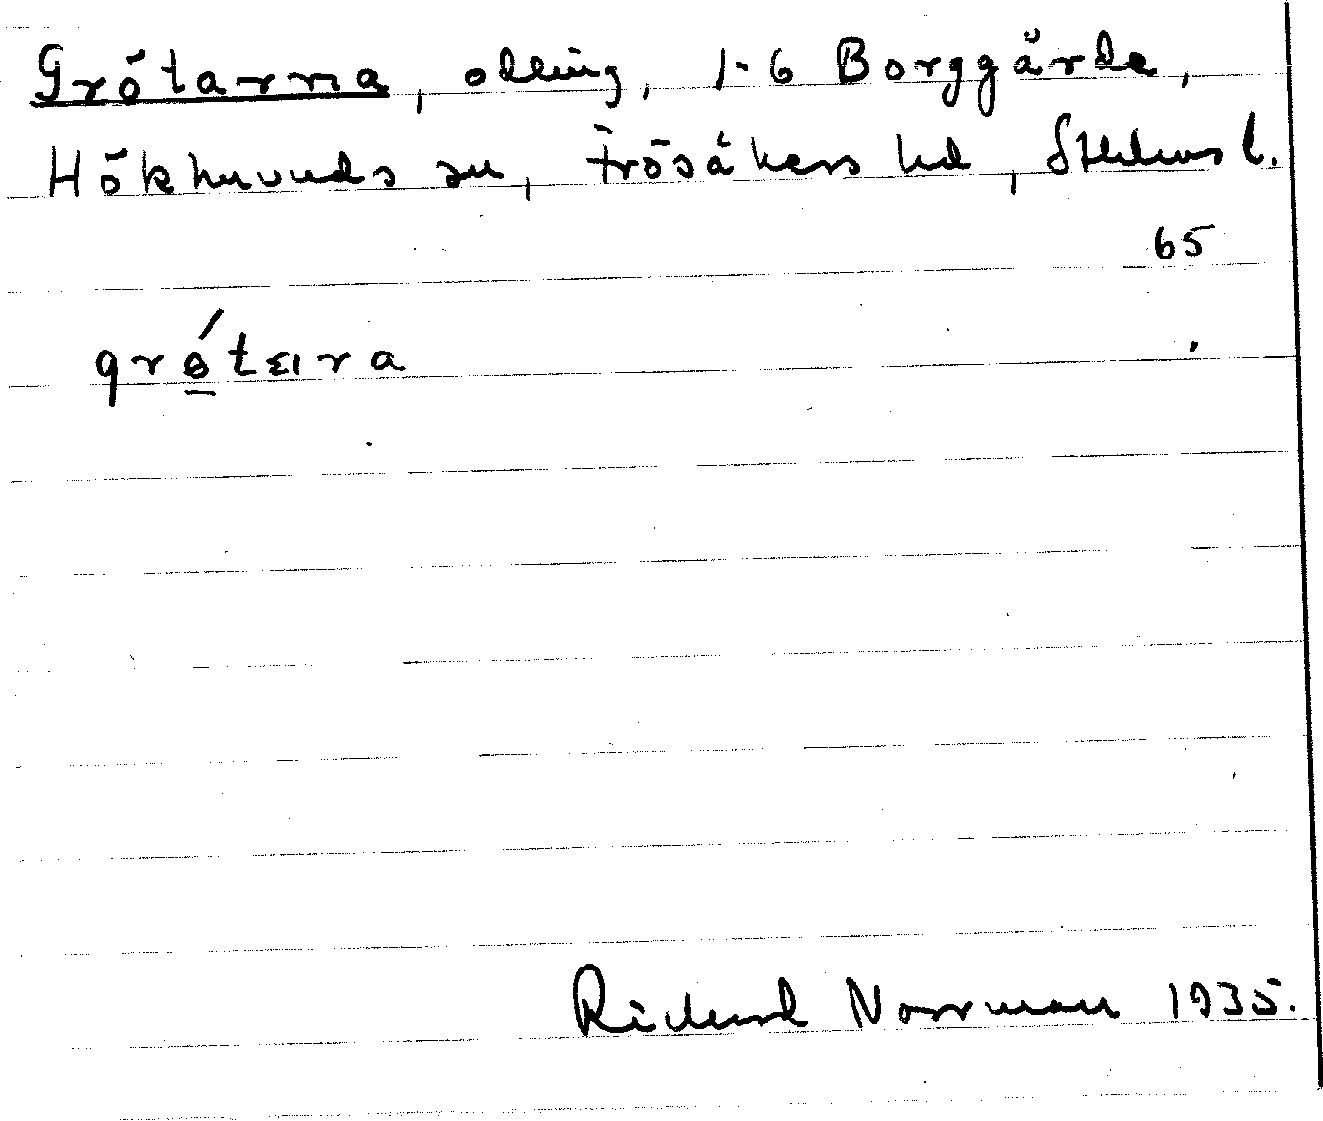 Grötarna, odling, 1-6 Borggärde,
Hökhuvuds sn, Frösåkers hd, Sthlms l.
65
grötɛıra
Richard Norrman 1935.